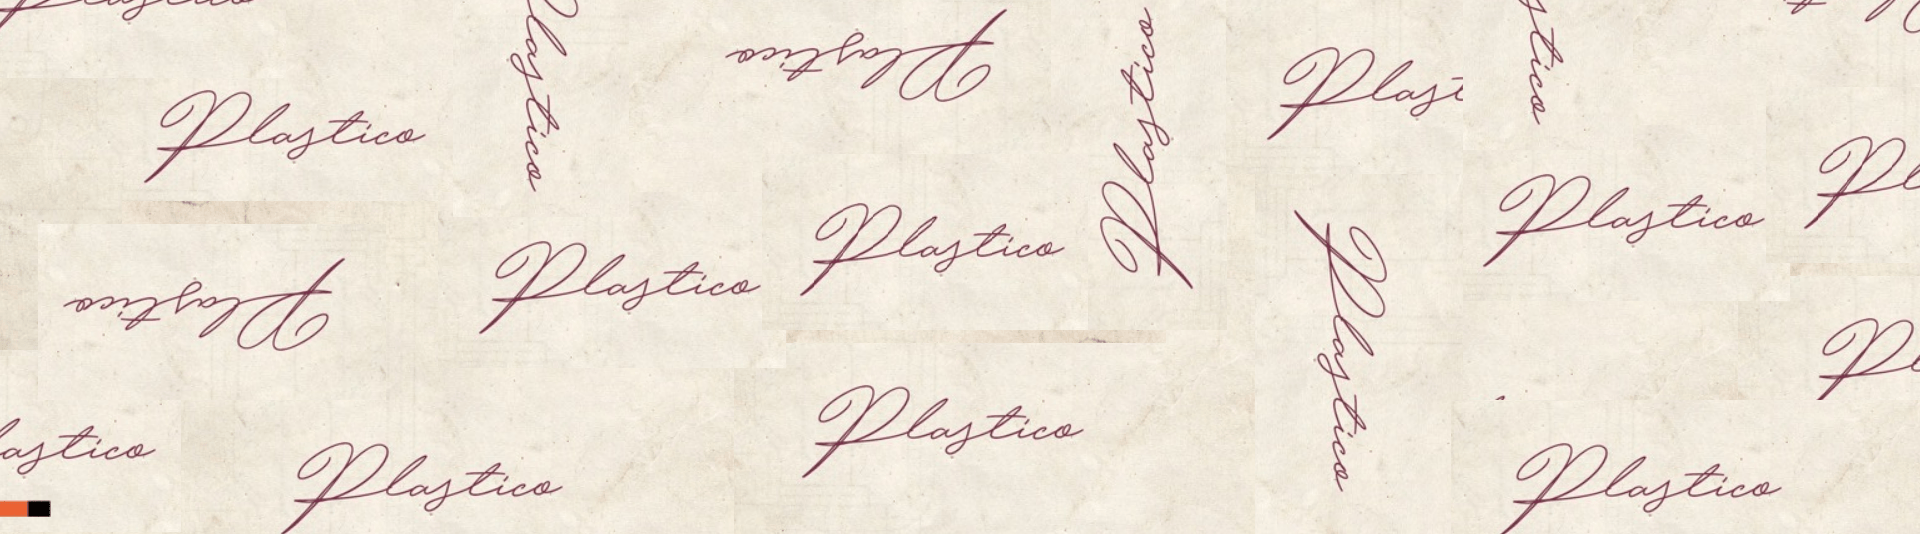 Plastico
Plastico
Plastico
Plastico
Plas
tico
Plastico
Pl
Plastico
Plastico
Plastico
Plastico
Plastico
Pl
Plastico
lastico
Plastico
Plastico